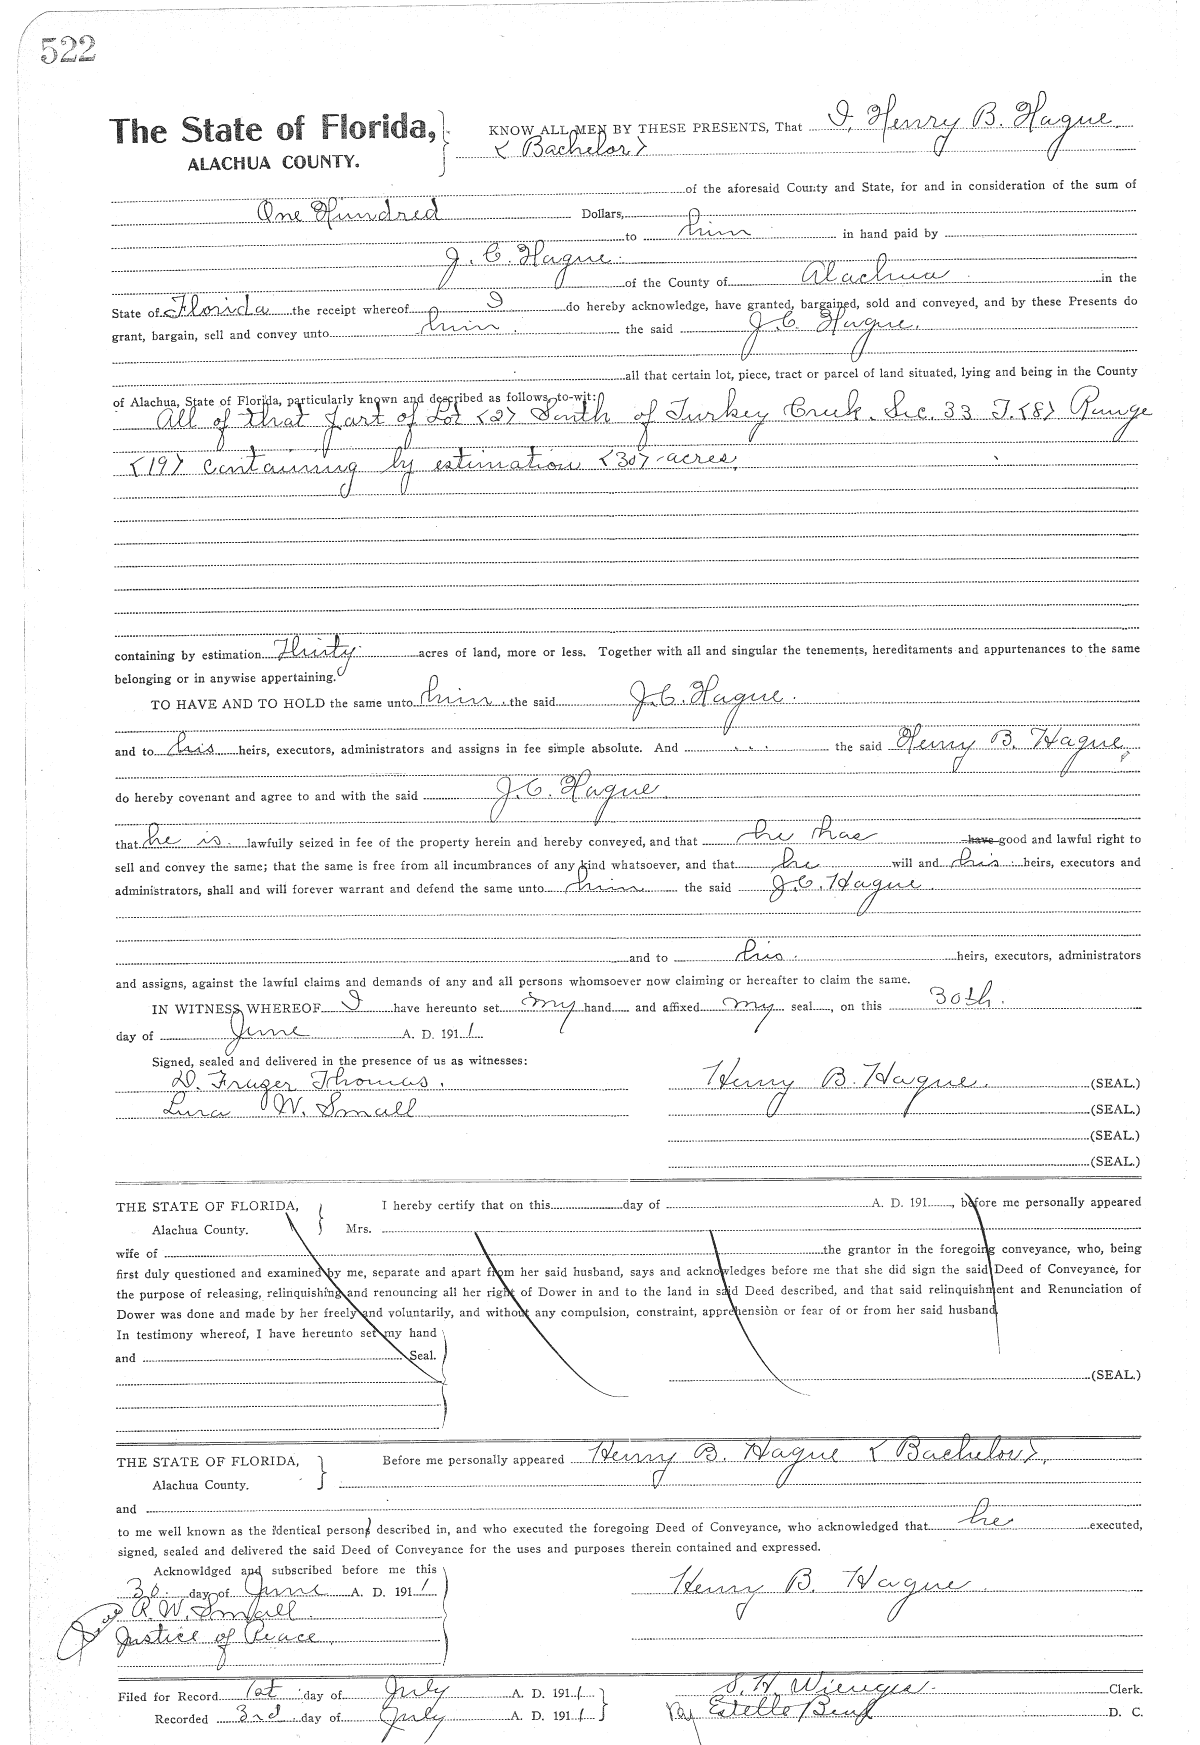 522
The State of Florida, KNOW ALL MEN BY THESE PRESENTS, That I, Henry B. Hague
ALACHUA COUNTY. <Bachelor>
of the aforesaid County and State, for and in consideration of the sum of
One Hundred Dollars,
to him in hand paid by
J. C. Hague
of the County of Alachua in the
State of Florida the receipt whereof I do hereby acknowledge, have granted, bargained, sold and conveyed, and by these Presents do
grant, bargain, sell and convey unto him the said J. C. Hague.
all that certain lot, piece, tract or parcel of land situated, lying and being in the County
of Alachua, State of Florida, particularly known and described as follows, to-wit:
All of that part of Lot <2> South of Turkey Creek. Sec. 33 T. <8> Range
<19> containing by estimation <30> acres.
containing by estimation Thirty acres of land, more or less. Together with all and singular the tenements, hereditaments and appurtenances to the same
belonging or in anywise appertaining.
TO HAVE AND TO HOLD the same unto him the said J. C. Hague.
and to his heirs, executors, administrators and assigns in fee simple absolute. And the said Henry B. Hague
do hereby covenant and agree to and with the said J. C. Hague
that he is lawfully seized in fee of the property herein and hereby conveyed, and that he has have good and lawful right to
sell and convey the same; that the same is free from all incumbrances of any kind whatsoever, and that he will and his heirs, executors and
administrators, shall and will forever warrant and defend the same unto him the said J. C. Hague
and to his heirs, executors, administrators
and assigns, against the lawful claims and demands of any and all persons whomsoever now claiming or hereafter to claim the same.
IN WITNESS WHEREOF I have hereunto set my hand and affixed my seal, on this 30th.
day of June A. D. 1911
Signed, sealed and delivered in the presence of us as witnesses:
D. Frazer Thomas. Henry B. Hague. (SEAL.)
Lura W. Small (SEAL.)
(SEAL.)
(SEAL.)
THE STATE OF FLORIDA, I hereby certify that on this day of A. D. 191, before me personally appeared
Alachua County. Mrs.
wife of the grantor in the foregoing conveyance, who, being
first duly questioned and examined by me, separate and apart from her said husband, says and acknowledges before me that she did sign the said Deed of Conveyance, for
the purpose of releasing, relinquishing and renouncing all her right of Dower in and to the land in said Deed described, and that said relinquishment and Renunciation of
Dower was done and made by her freely and voluntarily, and without any compulsion, constraint, apprehension or fear of or from her said husband.
In testimony whereof, I have hereunto set my hand
and Seal.
(SEAL.)
THE STATE OF FLORIDA, Before me personally appeared Henry B. Hague <Bachelor>,
Alachua County.
and
to me well known as the identical person described in, and who executed the foregoing Deed of Conveyance, who acknowledged that he executed,
signed, sealed and delivered the said Deed of Conveyance for the uses and purposes therein contained and expressed.
Acknowldged and subscribed before me this
30. day of June A. D. 1911 Henry B. Hague
Seal R. W. Small
Justice of Peace.
Filed for Record 1st day of July A. D. 1911 S. H. Wienges. Clerk.
Recorded 3rd day of July A. D. 1911 By Estelle D. C.